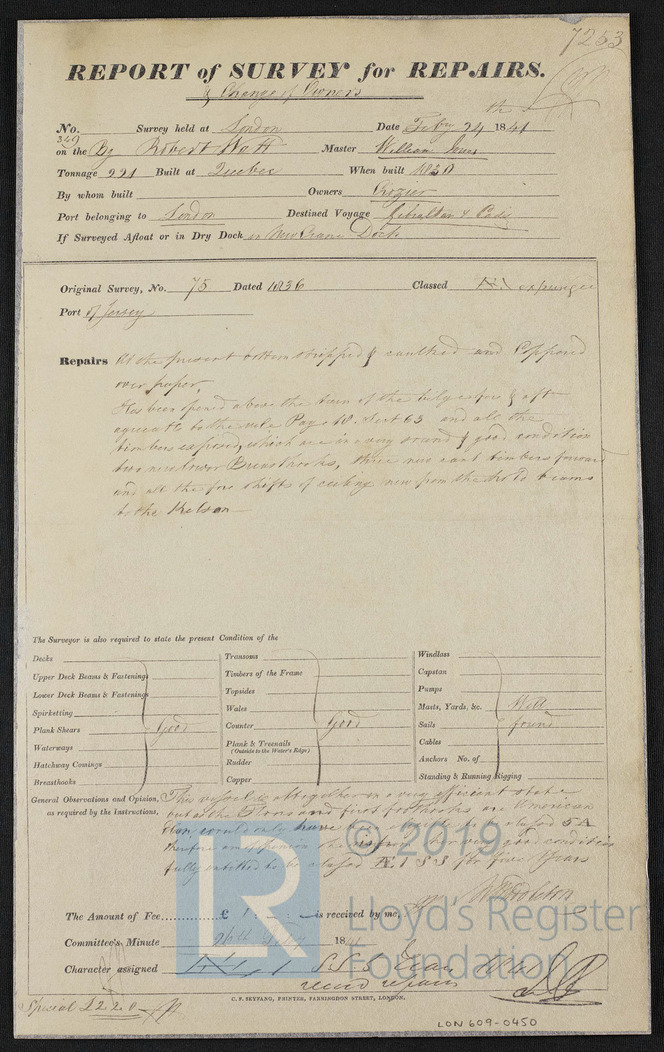 7253
REPORT of SURVEY for REPAIRS.
& Change of Owners
No. 349 Survey held at London Date Feby 24th 1841
on the Bg Robert Watt Master William
Tonnage 221 Built at Quebec When built 1830
By whom built Owners Crozier
Port belonging to London Destined Voyage Gibraltar &
If Surveyed Afloat or in Dry Dock in New Crane Dock
Original Survey, No. 75 Dated 1836 Classed expunged
Port of Jersey
Repairs At the present bottom stripped & caulked and Coppered
over paper.
Has been opened above the turn of the bilge fore & aft
agreeable to the rule Page 10. Sect 63 and all the
timbers exposed, which are in a very sound & good condition
two new lower Breasthooks, three new cant timbers forward
and all the fore shifts of ceiling new from the hold beams
to the Kelson
The Surveyor is also required to state the present Condition of the
Decks
Upper Deck Beams & Fastenings
Lower Deck Beams & Fastenings
Spirketting
Plank Shears Good
Waterways
Hatchway Comings
Breasthooks
Transoms
Timbers of the Frame
Topsides
Wales
Counter Good
Plank & Treenails
(Outside to the Water's Edge)
Rudder
Copper
Windlass
Capstan
Pumps
Masts, Yards, &c. Well
Sails found
Cables
Anchors No. of
Standing & Running Rigging
General Observations and Opinion, This vessel is altogether in a very efficient state
as required by the Instructions, but as the and first foothooks are American
could only have classed 5 A
therefore very good condition
fully entitled to be classed Æ 1 for five Years
The Amount of Fee £ 1 : - : - is received by me,
Committee's Minute 26th Feby 1841
Character assigned
recd repairs
C. F. SEYFANG, PRINTER, FARRINGDON STREET, LONDON.
Special £2.2.0
LON 609-0450
© 2019
LR
Lloyd's Register
Foundation